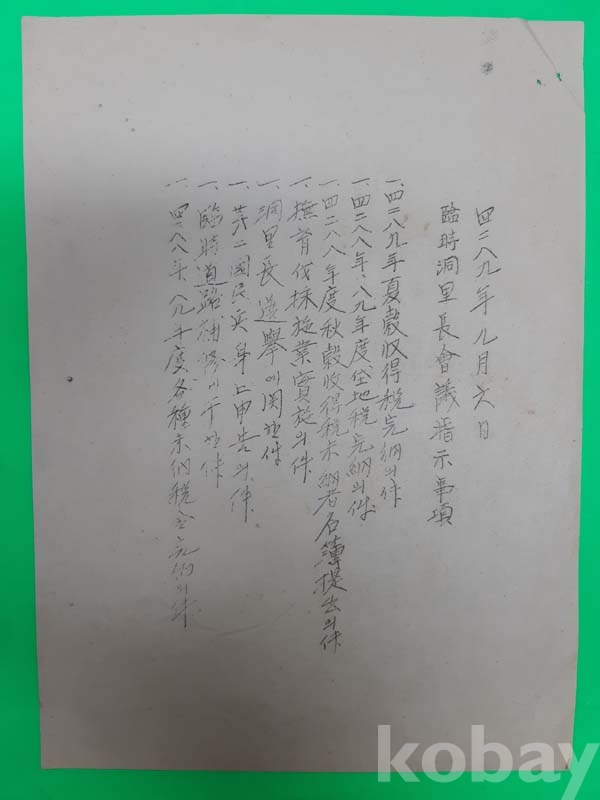 四二八九年九月六日
臨時洞里長會議指示事項
一. 四二八九年夏穀收得稅完納의件
一. 四二八八年、八九年度垈地稅完納의件
一. 四二八八年度秋穀收得稅未納者名簿提出의件
一. 撫育伐採施業實施의件
一. 洞里長選擧에関한件
一. 第二國民兵身上申告의件
一. 臨時道路補修에干한件
一. 四二八八年、八九年度各種未納稅金完納의件
kobay